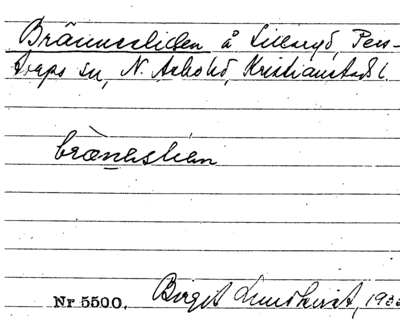 Bränneslidden å Lillaryd, Pers-
torps sn, N. Åsbo hd, Kristianstads l.
brænesliən
Nr 5500. Birgit Lundkvist, 193